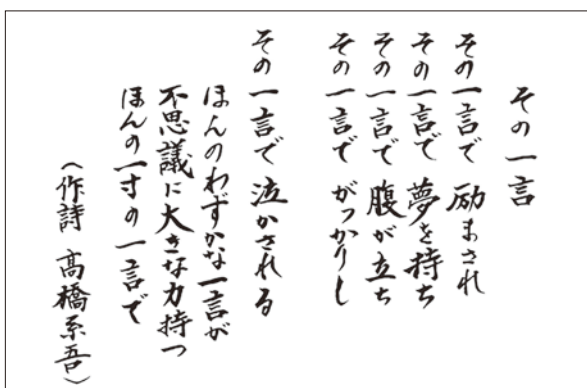 その一言
その一言で 励まされ
その一言で 夢を持ち
その一言で 腹が立ち
その一言で がっかりし
その一言で 泣かされる
ほんのわずかな一言が
不思議に大きな力持つ
ほんの一寸の一言で
（作詩 高橋系吾）